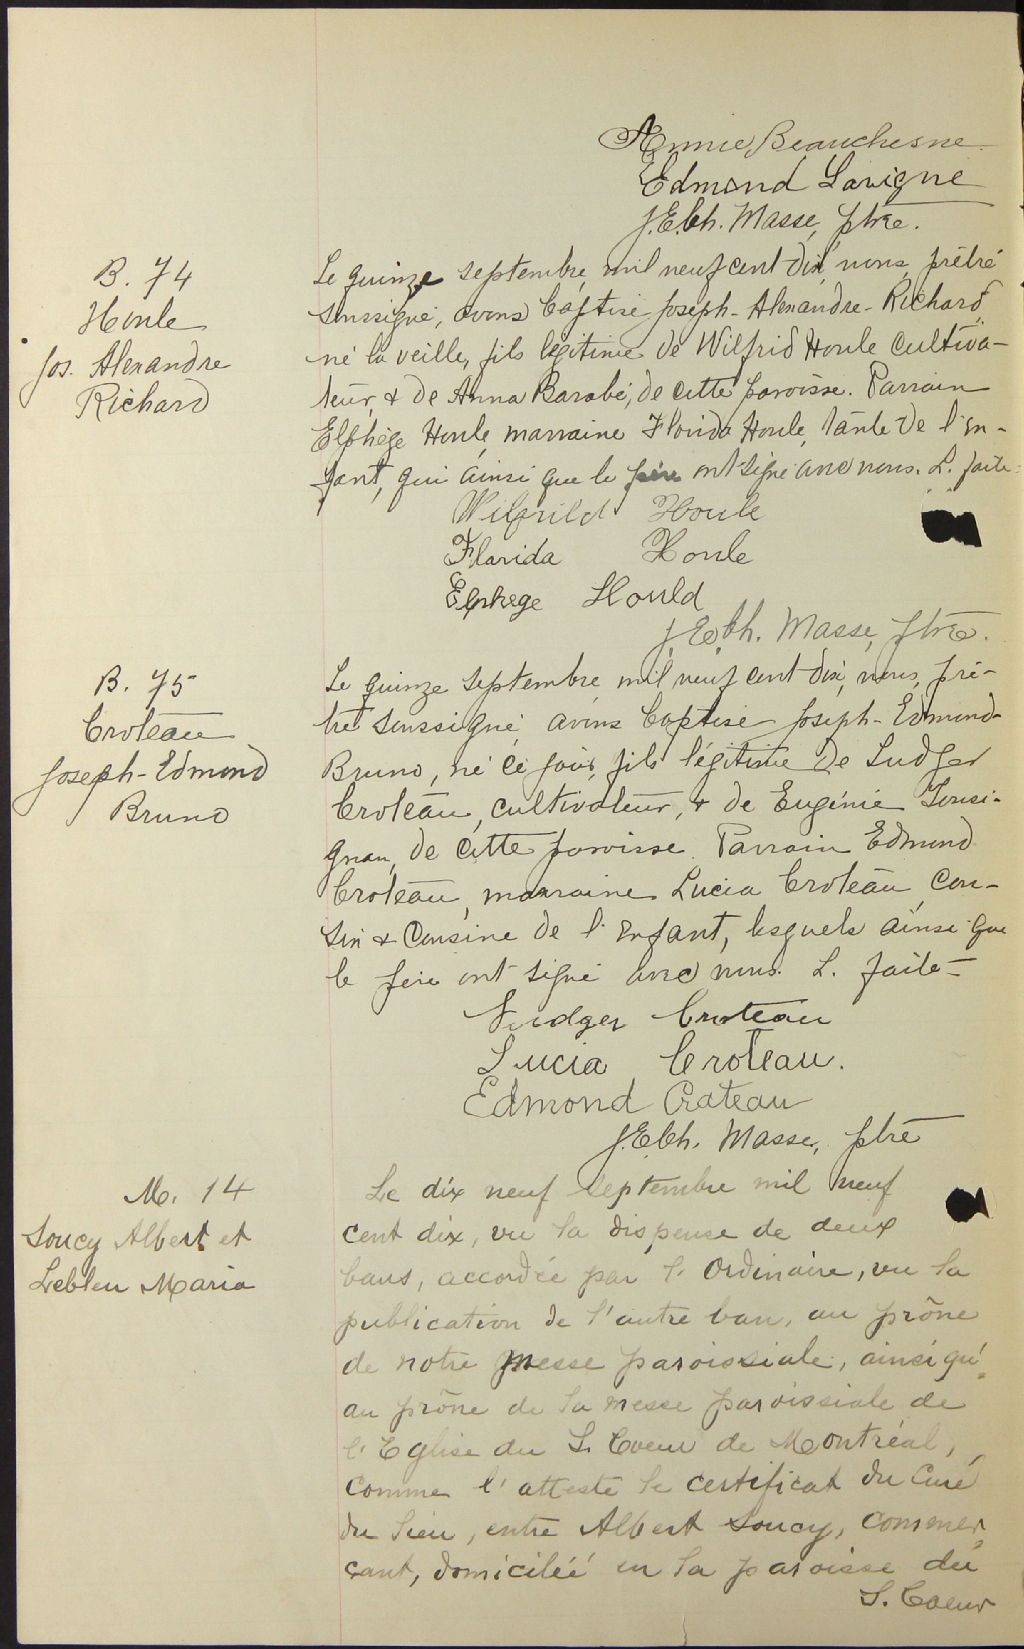 Annie Beauchesne
Edmond Lavigne
J. E. Ch. Masse, ptre.
B. 74
Houle
Jos. Alexandre
Richard
Le quinze septembre mil neuf cent dix nous, prêtre
soussigné, avons baptisé Joseph-Alexandre-Richard,
né la veille, fils légitime de Wilfrid Houle cultiva-
teur, & de Anna Barabé, de cette paroisse. Parrain
Elphège Houle, marraine Florida Houle, tante de l'en-
fant, qui ainsi que le père ont signé avec nous. L. faite.
Wilfrild Houle
Florida Houle
Elphege Hould
J. E. Ch. Masse, ptre.
B. 75
Croteau
Joseph-Edmond
Bruno
Le quinze septembre mil neuf cent dix, nous, prê-
tre soussigné avons baptisé Joseph-Edmond-
Bruno, né ce jour, fils légitime de Ludger
Croteau, cultivateur, & de Eugénie Tousi-
gnan, de cette paroisse. Parrain Edmond
Croteau, marraine Lucia Croteau, cou-
sin & cousine de l'enfant, lesquels ainsi que
le père ont signé avec nous. L. faite-
Ludger Croteau
Lucia Croteau.
Edmond Croteau
J. E. Ch. Masse, ptre
M. 14
Soucy Albert et
Lebleu Maria
Le dix neuf septembre mil neuf
cent dix, vu la dispense de deux
bans, accordée par l'Ordinaire, vu la
publication de l'autre ban, au prône
de notre messe paroissiale, ainsi qu'
au prône de la messe paroissiale de
l'Eglise du S. Coeur de Montréal,
comme l'atteste le certificat du Curé
du lieu, entre Albert Soucy, commer
çant, domiciléé en la paroisse du
S. Coeur